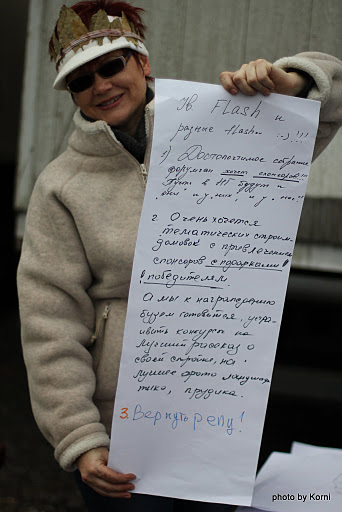 Flash и
разные flashи :-) !!!
1) Достопочтимое собрание
форумчан хочет спонсоров!!!
в НГ будут и
"они" и у них, и у нас,
2. Очень хочется
тематических строим.
домовок с привлечением
спонсоров с подарками
победителям.
А мы к награждению
будем готовится, устра-
ивать конкурсы на
лучший рассказ о
своей стройке, на
лучшее фото ландшафта
прудика.
3. Вернуть репу!
photo by Korni